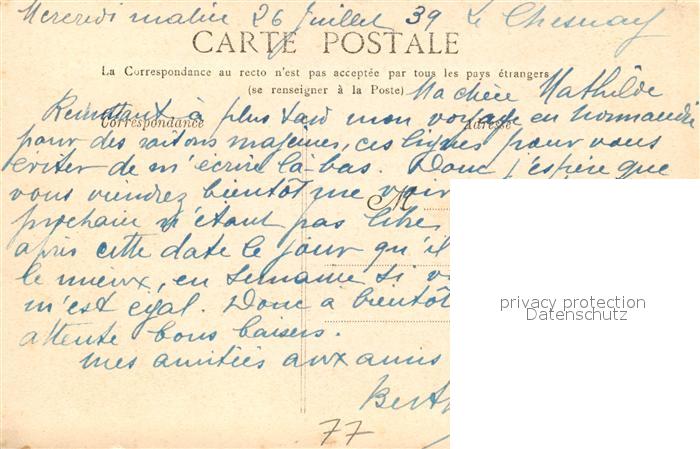 Mercredi matin 26 Juillet 39 Le Chesnay
CARTE POSTALE
La Correspondance au recto n'est pas acceptée par tous les pays étrangers
(se renseigner à la Poste)
Ma chère Mathilde
Remettant à plus tard mon voyage en Normandie
Correspondance Adresse
pour des raisons majeures, ces lignes pour vous
éviter de m'écrire là-bas. Donc j'espère que
vous viendrez bientôt me voir
M
prochain n'étant pas libre
après cette date le jour qu'il
le mieux, en semaine si
m'est égal. Donc à bientôt
attente bons baisers.
mes amitiés aux amis
Berth
77
privacy protection
Datenschutz